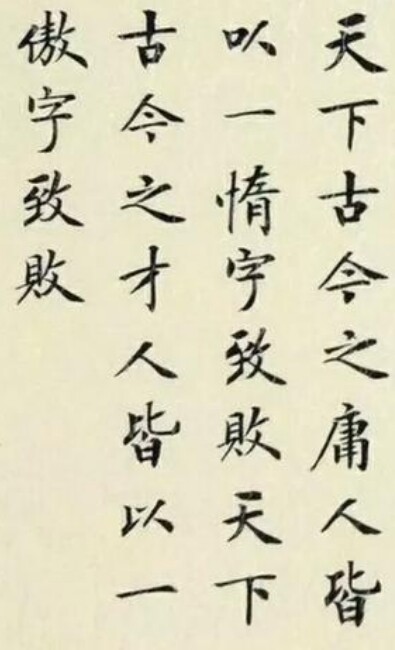 天下古今之庸人皆
以一惰字致敗天下
古今之才人皆以一
傲字致敗